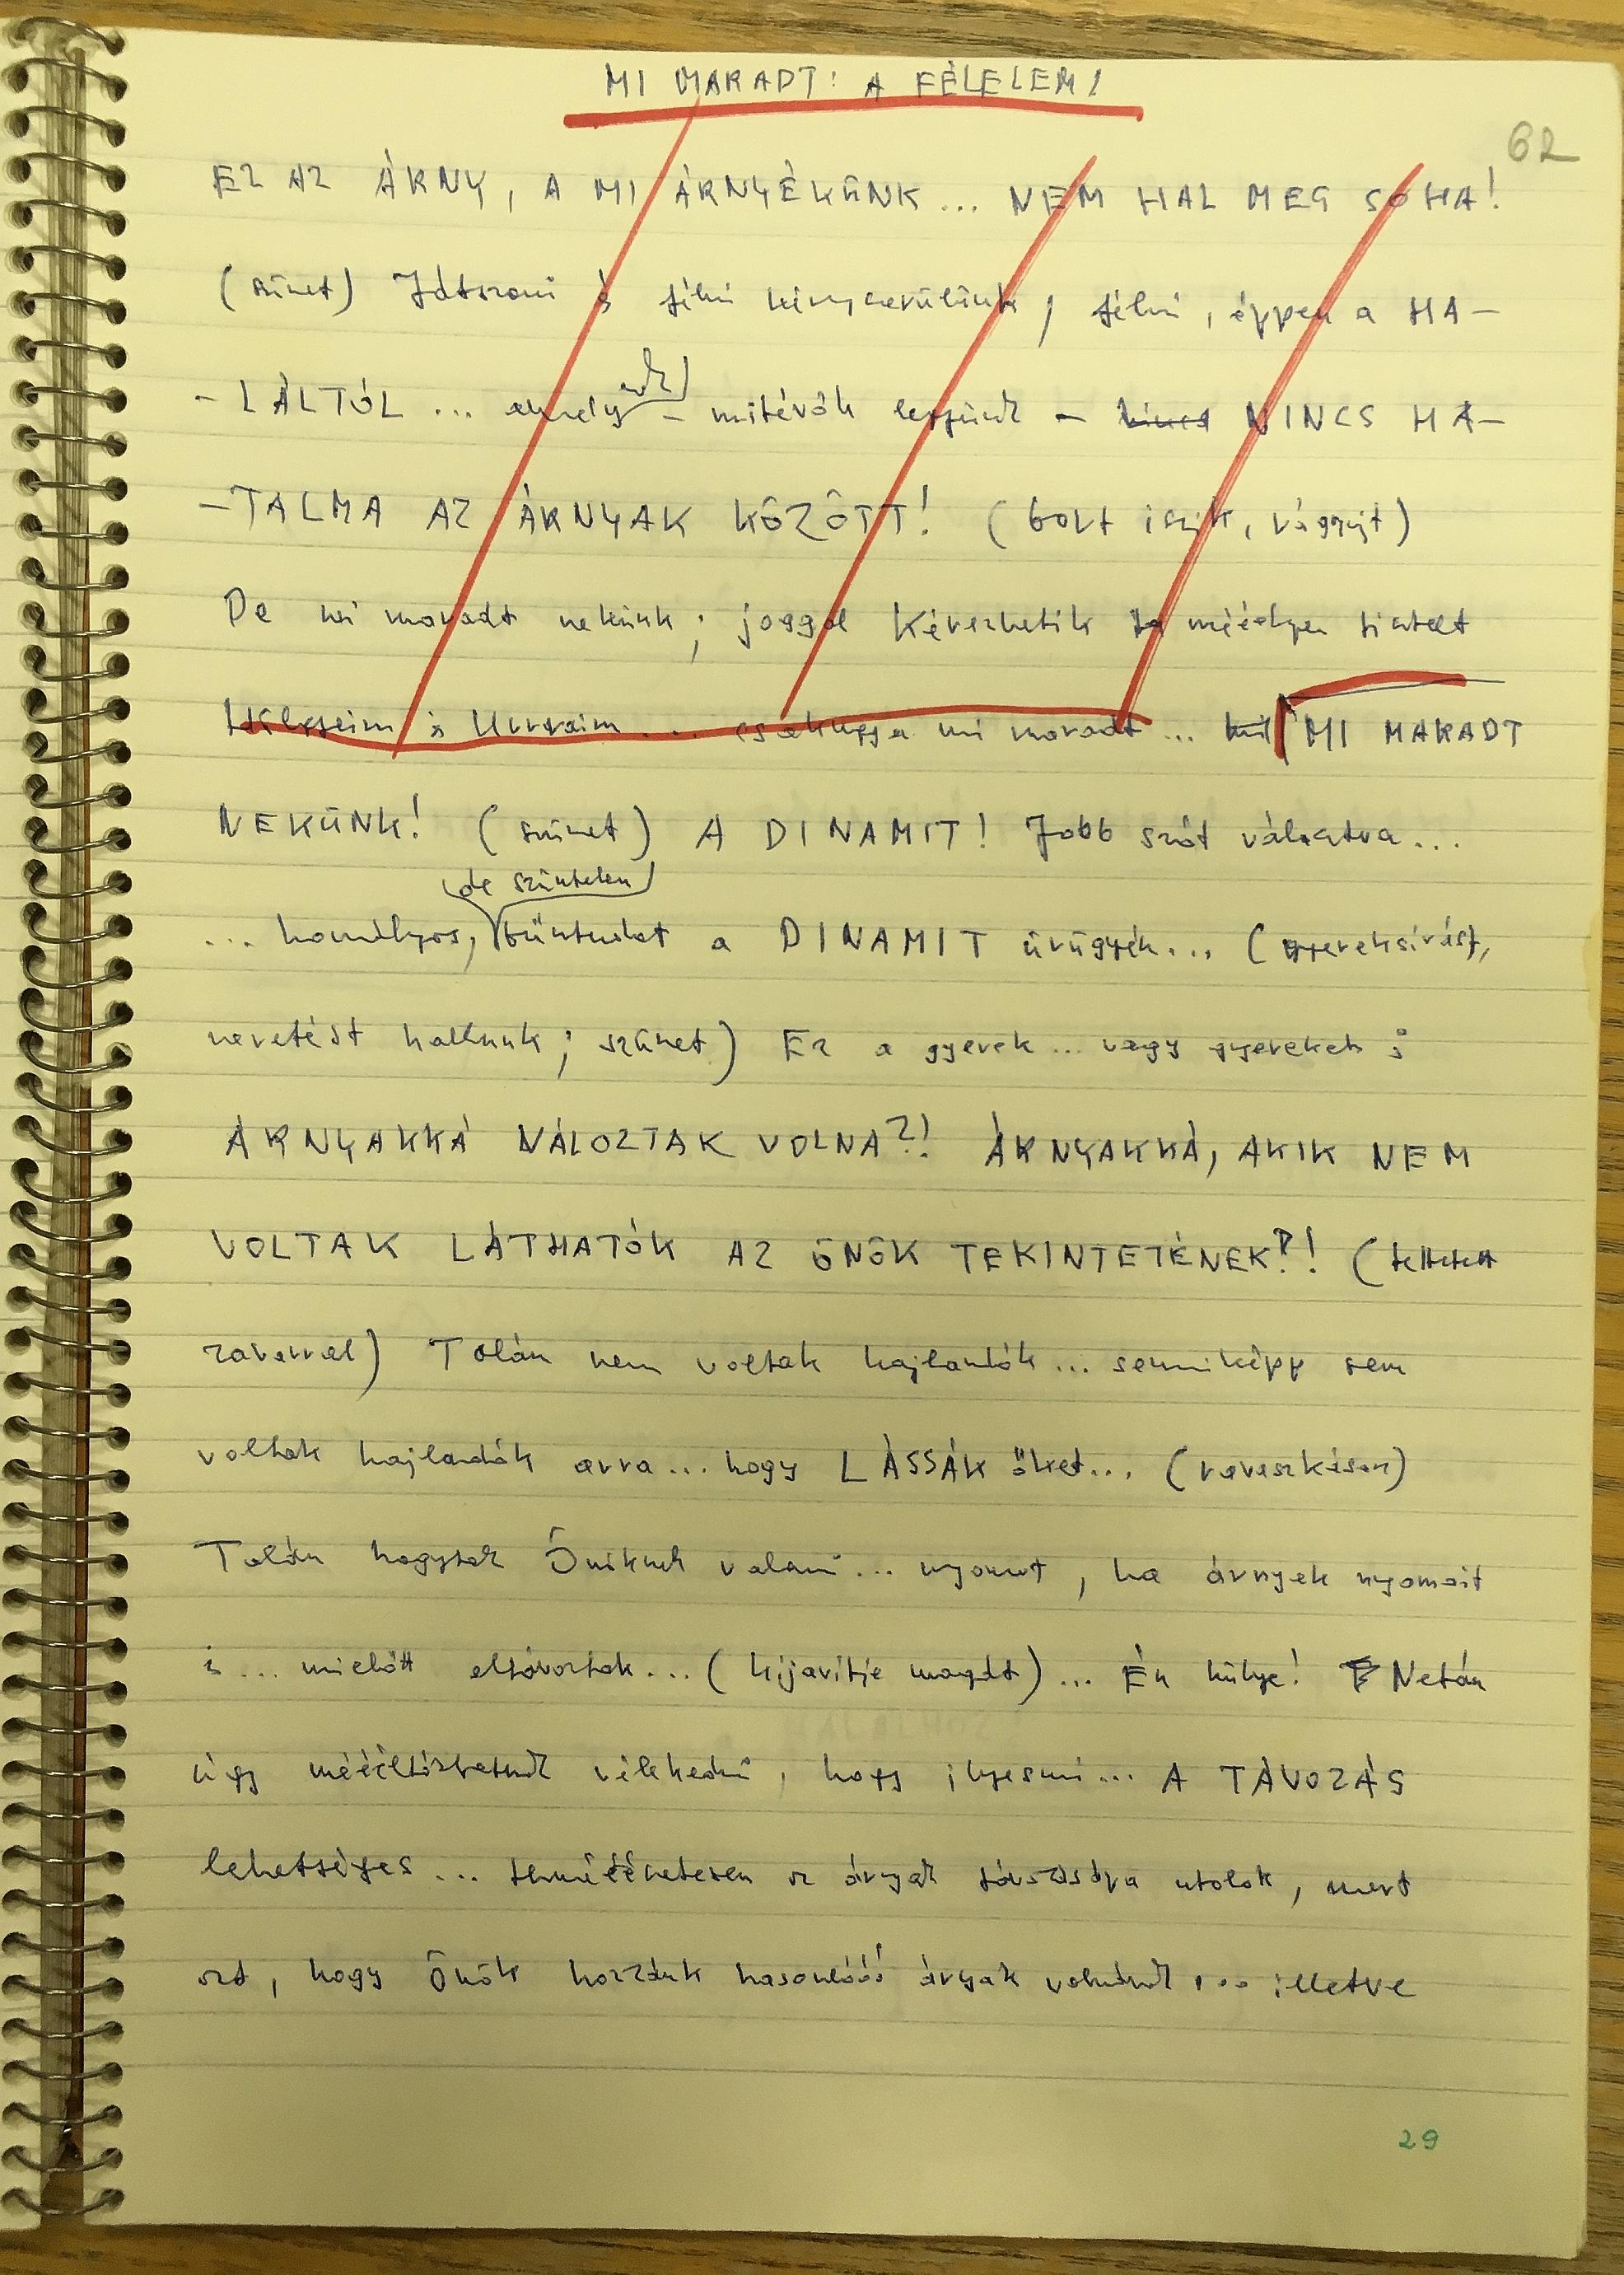 MI MARADT: A FÉLELEM!
62
EZ AZ ÁRNY, A MI ÁRNYÉKÜNK... NEM HAL MEG SOHA!
(szünet) Játszani és félni kényszerülünk, félni, éppen a HA-
-LÁLTÓL ... amely - mitévők legyünk - NINCS HA-
-TALMA AZ ÁRNYAK KÖZÖTT! (bort iszik, vágyujt)
De mi maradt nekünk; joggal kérezhetik méélyen tisztelt
Hölgyeim és Uurraim .... csakugyan mi maradt ... MI MARADT
NEKÜNK! (szünet) A DINAMIT! Jobb szót választva...
(de színtelen)
... homályos, bűntudat a DINAMIT ürügyén... (gyereksírást,
nevetést hallunk; szünet) Ez a gyerek ... vagy gyerekek is
ÁRNYAKKÁ VÁLOZTAK VOLNA?! ÁRNYAKKÁ, AKIK NEM
VOLTAK LÁTHATÓK AZ ÖNÖK TEKINTETÉNEK?! (tettetett
zavarral) Talán nem voltak hajlandók... semmiképp sem
voltak hajlandók arra... hogy LÁSSÁK őket... (ravaszkásan)
Talán hagytak Önöknek valami... nyomot, ha árnyak nyomait
is ... mielőtt eltávoztak...(kijavítja magát)... Én hülye! Netán
úgy méééltóztatnak vélekedni, hogy ilyesmi... A TÁVOZÁS
lehetséges... természetesen az árnyak társaságára utalok, mert
azt, hogy Önök hozzánk hasonlóóó árnyak volnának ... illetve
29